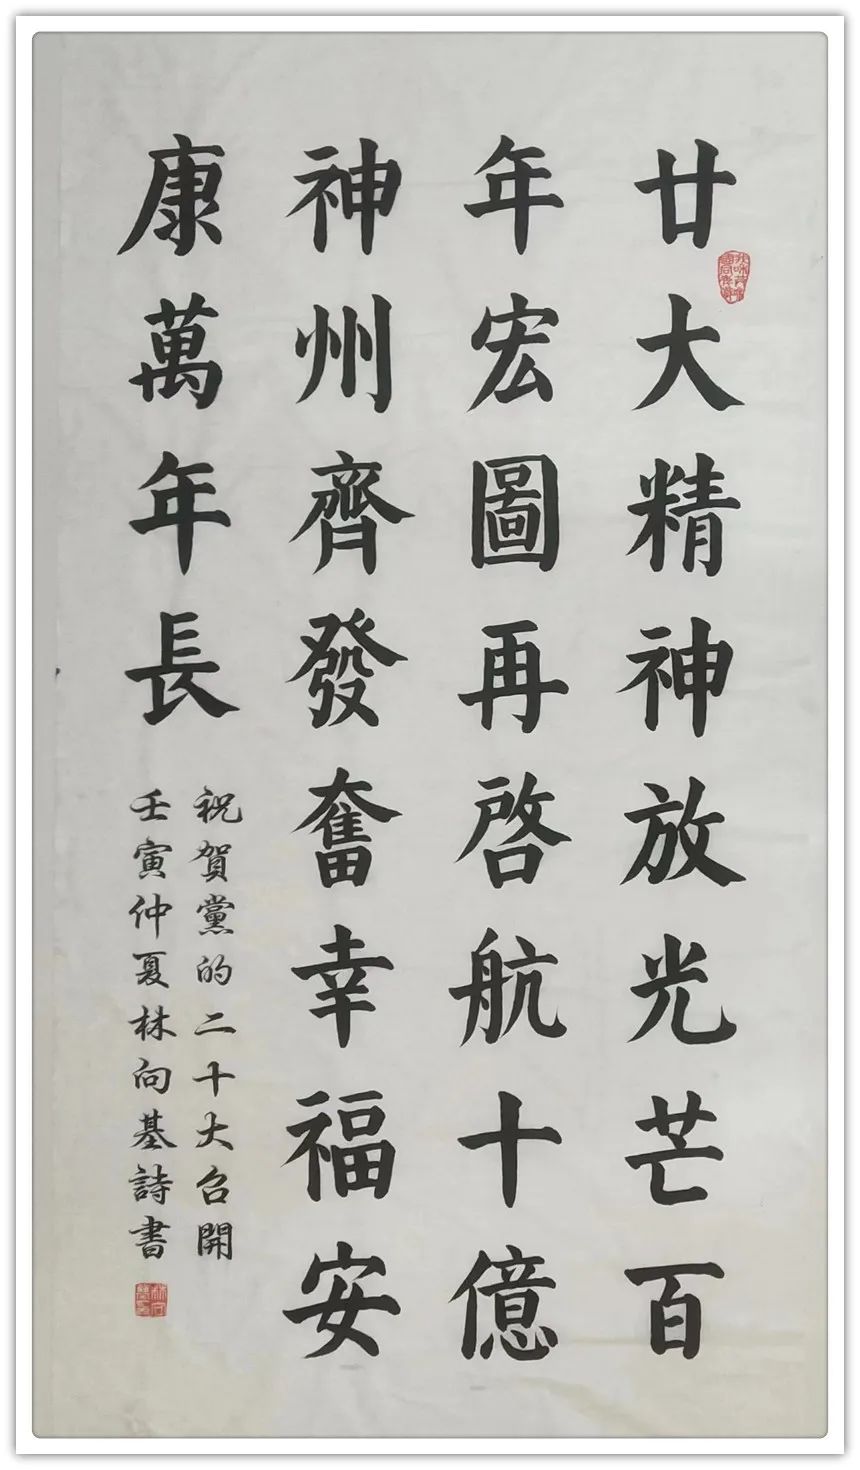 廿大精神放光芒百
年宏圖再啓航十億
神州齊發奮幸福安
康萬年長
祝賀黨的二十大召開
壬寅仲夏林向基詩書